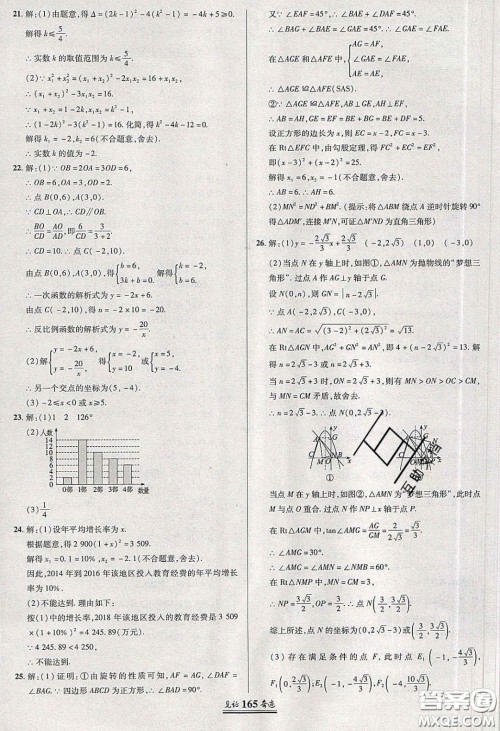 21. 解:(1)由题意,得 Δ=(2k-1)²-4(k²-1)=-4k+5≥0.
解得 k≤5/4.
∴实数 k 的取值范围为 k≤5/4.
(2)∵x₁²+x₂²=(x₁+x₂)²-2x₁x₂=16+x₁x₂,
∵x₁+x₂=1-2k,x₁x₂=k²-1,
∴(1-2k)²-3(k²-1)=16.化简,得 k²-4k-12=0.
解得 k₁=-2,k₂=6(不合题意,舍去).
∴实数 k 的值为-2.
22. 解:(1)∵OB=2OA=3OD=6,
∴OB=6,OA=3,OD=2.
∴点 B(0,6),A(3,0).
∵CD⊥OA,∴CD∥OB.
∴BO/CD=AO/AD,即 6/CD=3/(3+2).
∴CD=10.∴点 C(-2,10).
由点 B(0,6),A(3,0),得{b=6, 3k+b=0. 解得{k=-2, b=6.
∴一次函数的解析式为 y=-2x+6.
由点 C(-2,10),得反比例函数的解析式为
∴反比例函数的解析式为 y=-20/x.
(2)解{y=-2x+6, y=-20/x. 得{x=-2, y=10 或{x=5, y=-4.
∴另一个交点的坐标为(5,-4).
(3)-2≤x<0 或 x≥5.
23. 解:(1)1 2 126°
(2)人数
14
12
10
8
6
4
2
0部 1部 2部 3部 4部 数量
(3)1/4
24. 解:(1)设年平均增长率为 x.
根据题意,得 2 900(1+x)²=3 509.
解得 x₁=0.1=10%,x₂=-2.1(不合题意,舍去).
因此,2014 年到 2016 年该地区投入教育经费的年平均增长
率为 10%.
(2)不能达到.理由如下:
按(1)中的增长率,2018 年该地区投入的教育经费是 3 509
×(1+10%)²=4 245.89(万元).
∵4 245.89<4 250,
∴不能达到.
25. 解:(1)证明:①由旋转的性质可知,AF=AG,∠DAF=
∠BAG.∵四边形 ABCD 为正方形,∴∠BAD=90°.
又∵∠EAF=45°,∴∠BAE+∠DAF=45°.
∴∠BAG+∠BAE=45°.∴∠GAE=∠FAE.
在△AGE 和△AFE 中,{AG=AF, ∠GAE=∠FAE, AE=AE,
∴△AGE≌△AFE(SAS).
②∵△AGE≌△AFE,AB⊥GE,AH⊥EF,
∴AB=AH,GE=EF=BE+BG=BE+DF=5.
设正方形的边长为 x,则 EC=x-2,FC=x-3.
在 Rt△EFC 中,由勾股定理,得 FC²+EC²=EF²,
即(x-3)²+(x-2)²=25.
解得 x₁=6,x₂=-1(不合题意,舍去).
∴AB=6.∴AH=6.
(2)MN²=ND²+BM².(提示:将△ABM 绕点 A 逆时针旋转 90°
得△ADM′,连接 NM′,可证△M′ND 为直角三角形)
26. 解:(1)y=-2√3/3x+2√3/3 (-2,2√3) (-3,0)
(2)当点 N 在 y 轴上时,如图①,△AMN 为抛物线的“梦想三
角形”.过点 A 作 AG⊥y 轴于点 G.
设 N(0,n),则 GN=|n-2√3|.
∵点 A(-2,2√3),C(-3,0),
∴AN=AC=√((-3+2)²+(2√3)²)=√13.
在 Rt△AGN 中,AG²+GN²=AN²,即 4+(n-2√3)²=
13.解得 n=2√3-3 或 n=2√3+3.
当 n=2√3+3 时,ON>OC.∵MN=CN>OC,
∴MN>CM,与 MN=CM 矛盾,不合题意,舍去.
∴n=2√3-3.∴点 N(0,2√3-3).
①
当点 M 在 y 轴上时,如图②,△AMN 为“梦想三角形”,
在 Rt△AGM 中,tan∠AMG=AG/GM=2√3/3
∴∠AMG=30°.
∴∠AMC=∠AMN=∠NMB=60°.
在 Rt△NMP 中,MN=CM=
∴NP=,OP=3/2.∴点 N(3/2,3√3/2).
综上所述,点 N(0,2√3-3)或(3/2,3√3/2).
(3)存在满足条件的点 F,E.E₁(-1,-4√3/3),
F₁(0,2√3/3);E₂(-1,-4√3/3),F₂(-4,10√3/3).
见证 165 奋悉
互助
答案圈
MXQE.COM